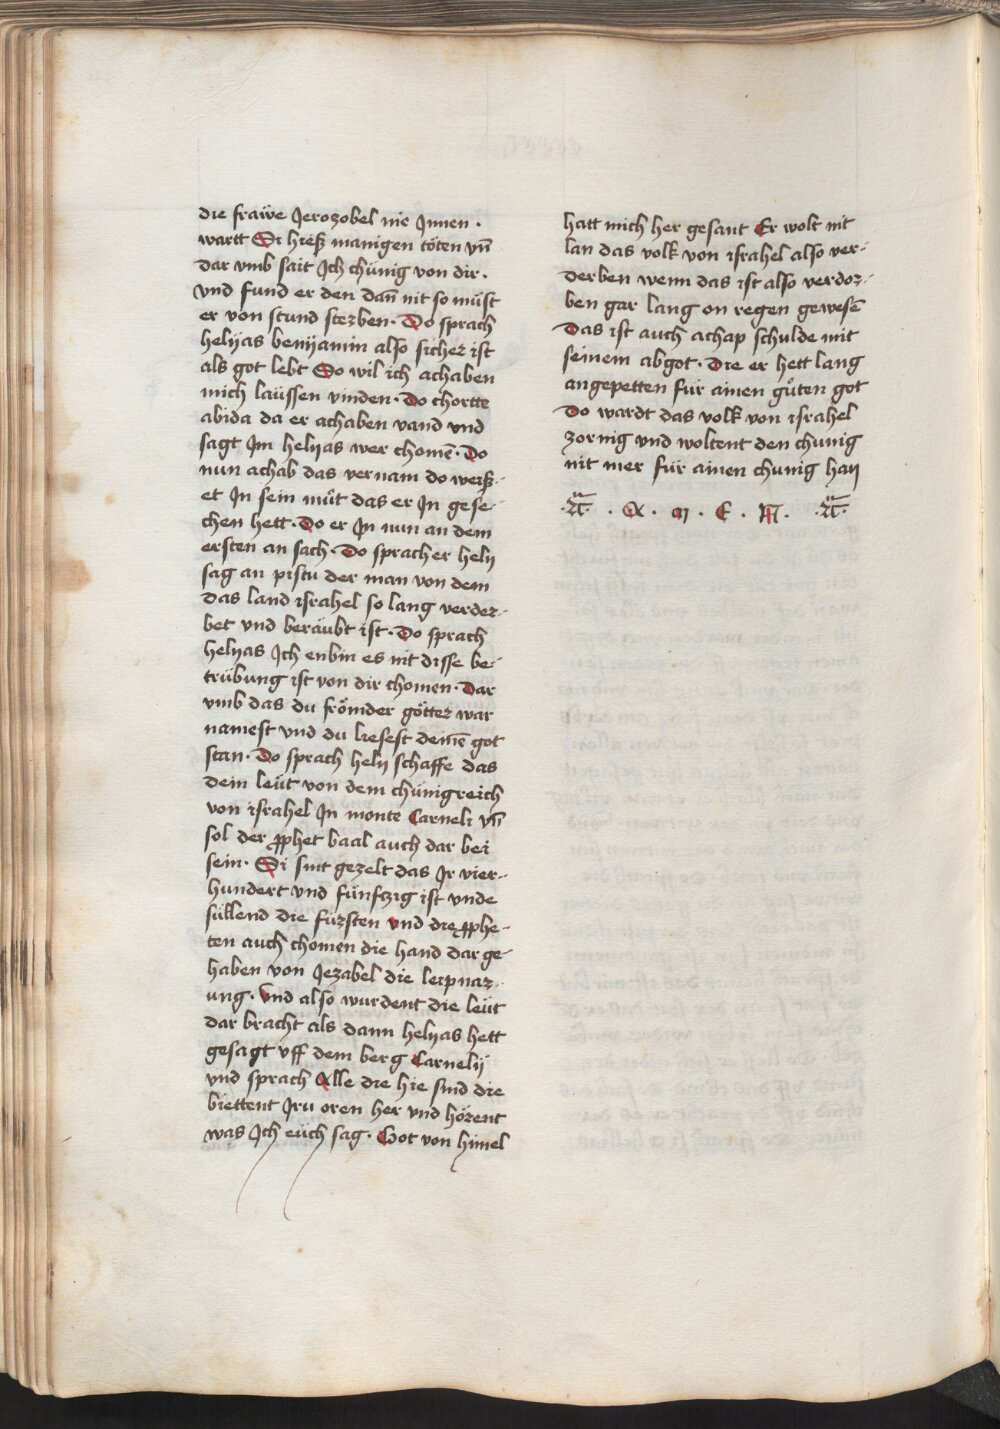 die frawe Jerozobel nie Innen ·
wartt Si hieß manigen töten vn̄
dar vmb sait Ich chünig von dir ·
vnd fund er den dan̄ nit so müst
er von stund sterben · Do sprach
helyas benyamin also sicher ist
als got lebt So wil ich achaben
mich laüssen vinden · Do chortte
abida da er achaben vand vnd
sagt Im helyas wer chomē · Do
nun achab das vernam do weiß-
et In sein müt das er In gese-
chen hett · Do er In nun an dem
ersten an sach · Do sprach er hely
sag an pistu der man von dem
das land israhel so lang verder-
bet vnd beräubt ist · Do sprach
helyas Ich enbin es nit disse be-
trübung ist von dir chomen · Dar
vmb das du frömder götter war
namest vnd du liesest deinē got
stan · Do sprach hely schaffe das
dein leüt von dem chünigreich
von israhel In monte Carneli vn̄
sol der ꝓphet baal auch dar bei
sein · Si sint gezelt das Ir vier-
hundert vnd fünftzig ist vnde
süllend die fürsten vnd die ꝓphe-
ten auch chomen die hand dar ge-
haben von Jezabel die leipnar-
ung · Vnd also wurdent die leüt
dar bracht als dann helyas hett
gesagt vff dem berg Carnelÿ
vnd sprach Alle die hie sind die
biettent Iru oren her vnd hörent
was Ich eüch sag · Got von himel
hatt mich her gesant Er wolt nit
lan das volk von israhel also ver-
derben wenn das ist also verdor-
ben gar lang on regen gewesē
Das ist auch achap schulde mit
seinem abgot · Die er hett lang
angepetten für ainen güten got
Do wardt das volk von israhel
zornig vnd woltent den chunig
nit mer für ainen chunig han
· A · M · E · N ·